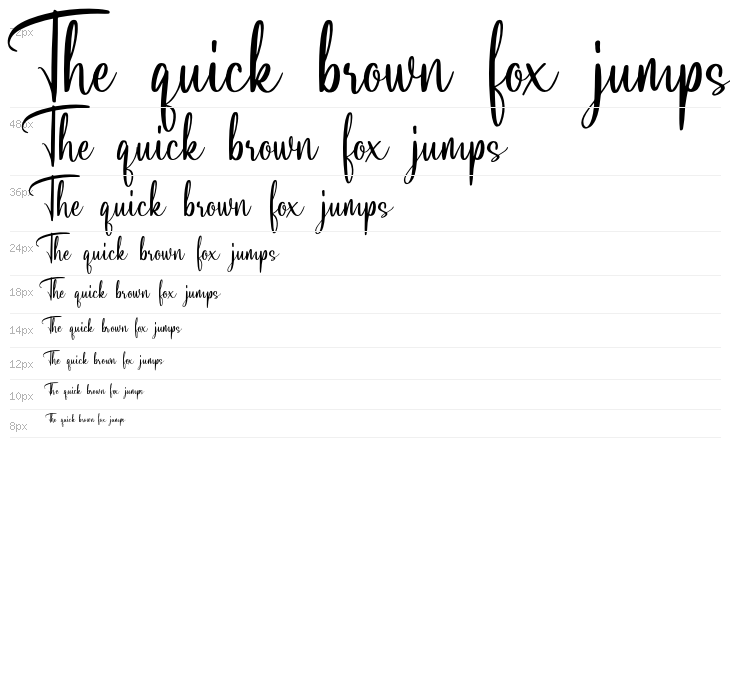 72px The quick brown fox jumps
48px The quick brown fox jumps
36px The quick brown fox jumps
24px The quick brown fox jumps
18px The quick brown fox jumps
14px The quick brown fox jumps
12px The quick brown fox jumps
10px The quick brown fox jumps
8px The quick brown fox jumps